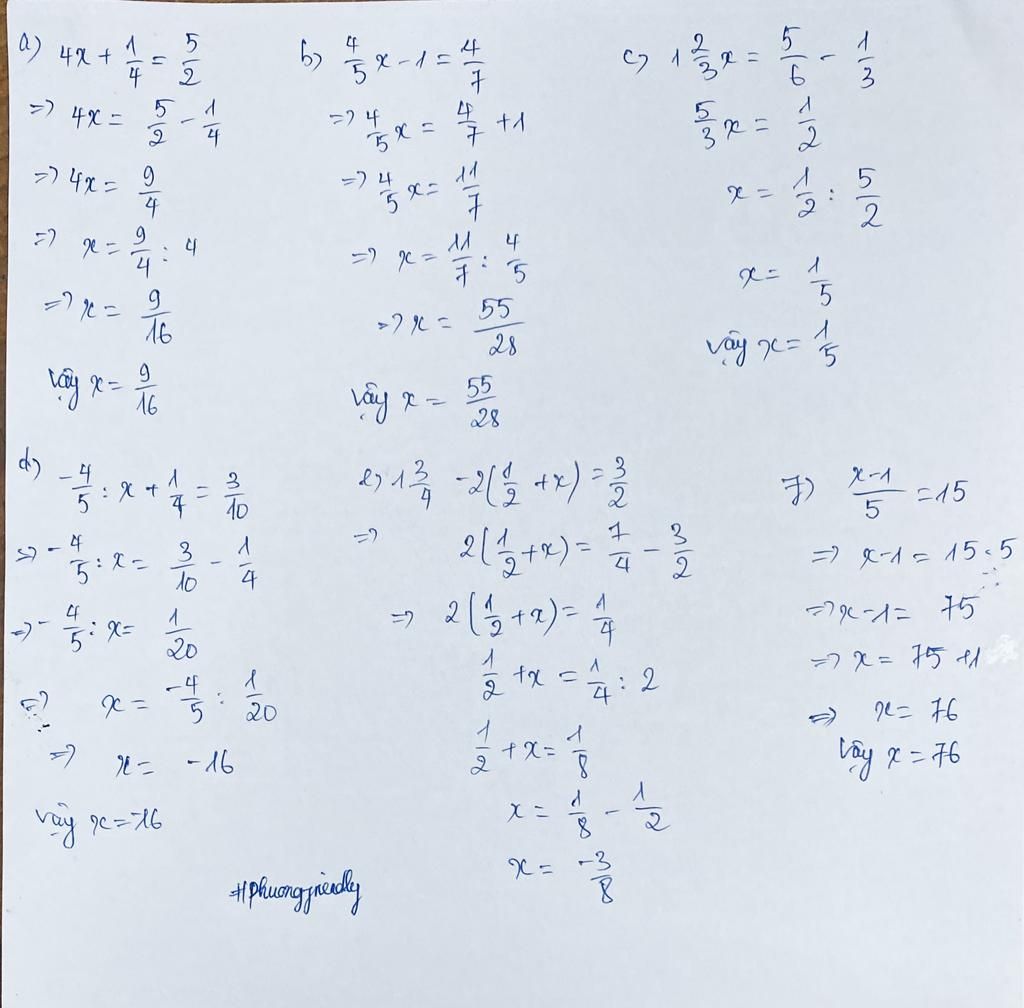 a) 4x + 1/4 = 5/2
=> 4x = 5/2 - 1/4
=> 4x = 9/4
=> x = 9/4 : 4
=> x = 9/16
Vậy x = 9/16
b) 4/5 x - 1 = 4/7
=> 4/5 x = 4/7 + 1
=> 4/5 x = 11/7
=> x = 11/7 : 4/5
=> x = 55/28
Vậy x = 55/28
c) 1 2/3 x = 5/6 - 1/3
5/3 x = 1/2
x = 1/2 : 5/2
x = 1/5
Vậy x = 1/5
d) -4/5 : x + 1/4 = 3/10
=> -4/5 : x = 3/10 - 1/4
=> -4/5 : x = 1/20
=> x = -4/5 : 1/20
=> x = -16
Vậy x = -16
e) 1 3/4 - 2(1/2 + x) = 3/2
=> 2(1/2 + x) = 7/4 - 3/2
=> 2(1/2 + x) = 1/4
1/2 + x = 1/4 : 2
1/2 + x = 1/8
x = 1/8 - 1/2
x = -3/8
f) (x-1)/5 = 15
=> x-1 = 15.5
=> x-1 = 75
=> x = 75 + 1
=> x = 76
Vậy x = 76
#phuongfriendly